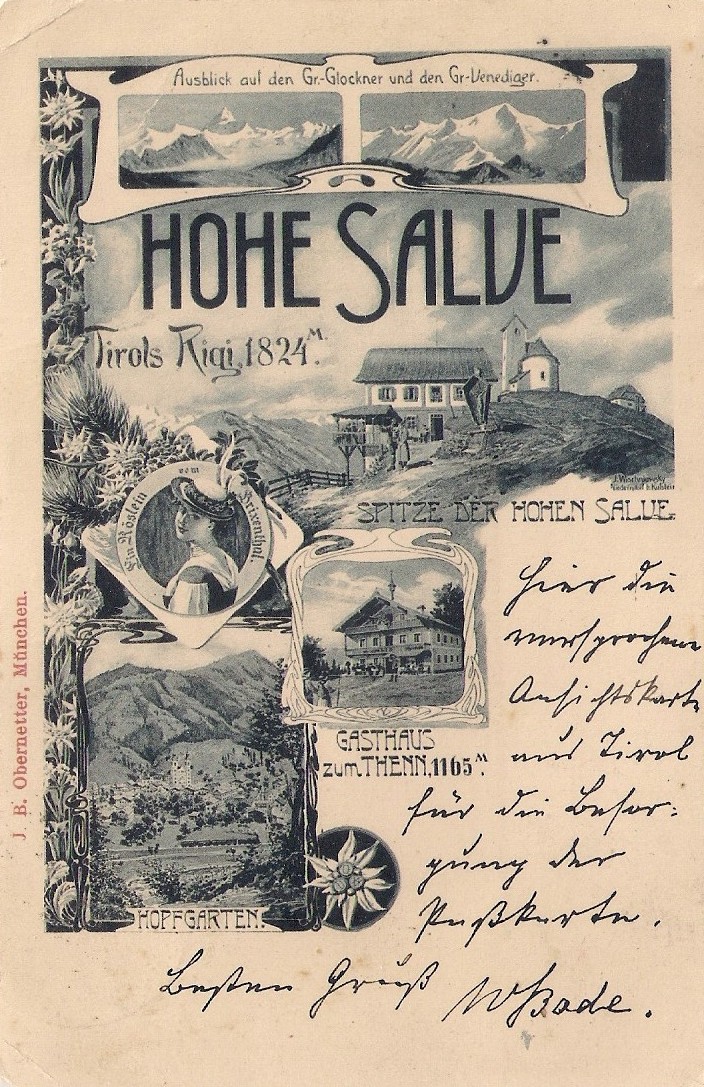 Ausblick auf den Gr.-Glockner und den Gr-Venediger.
HOHE SALVE
Tirols Rigi, 1824 M.
J. Wischniowsky
Niederndorf b. Kufstein
SPITZE DER HOHEN SALVE.
Ein Röslein vom Brixenthal.
GASTHAUS
zum THENN, 1165 M.
HOPFGARTEN.
J. B. Obernetter, München.
Hier die
versprochene
Ansichtskarte
aus Tirol
für die Besor-
gung der
Paßkarte.
Besten Gruß